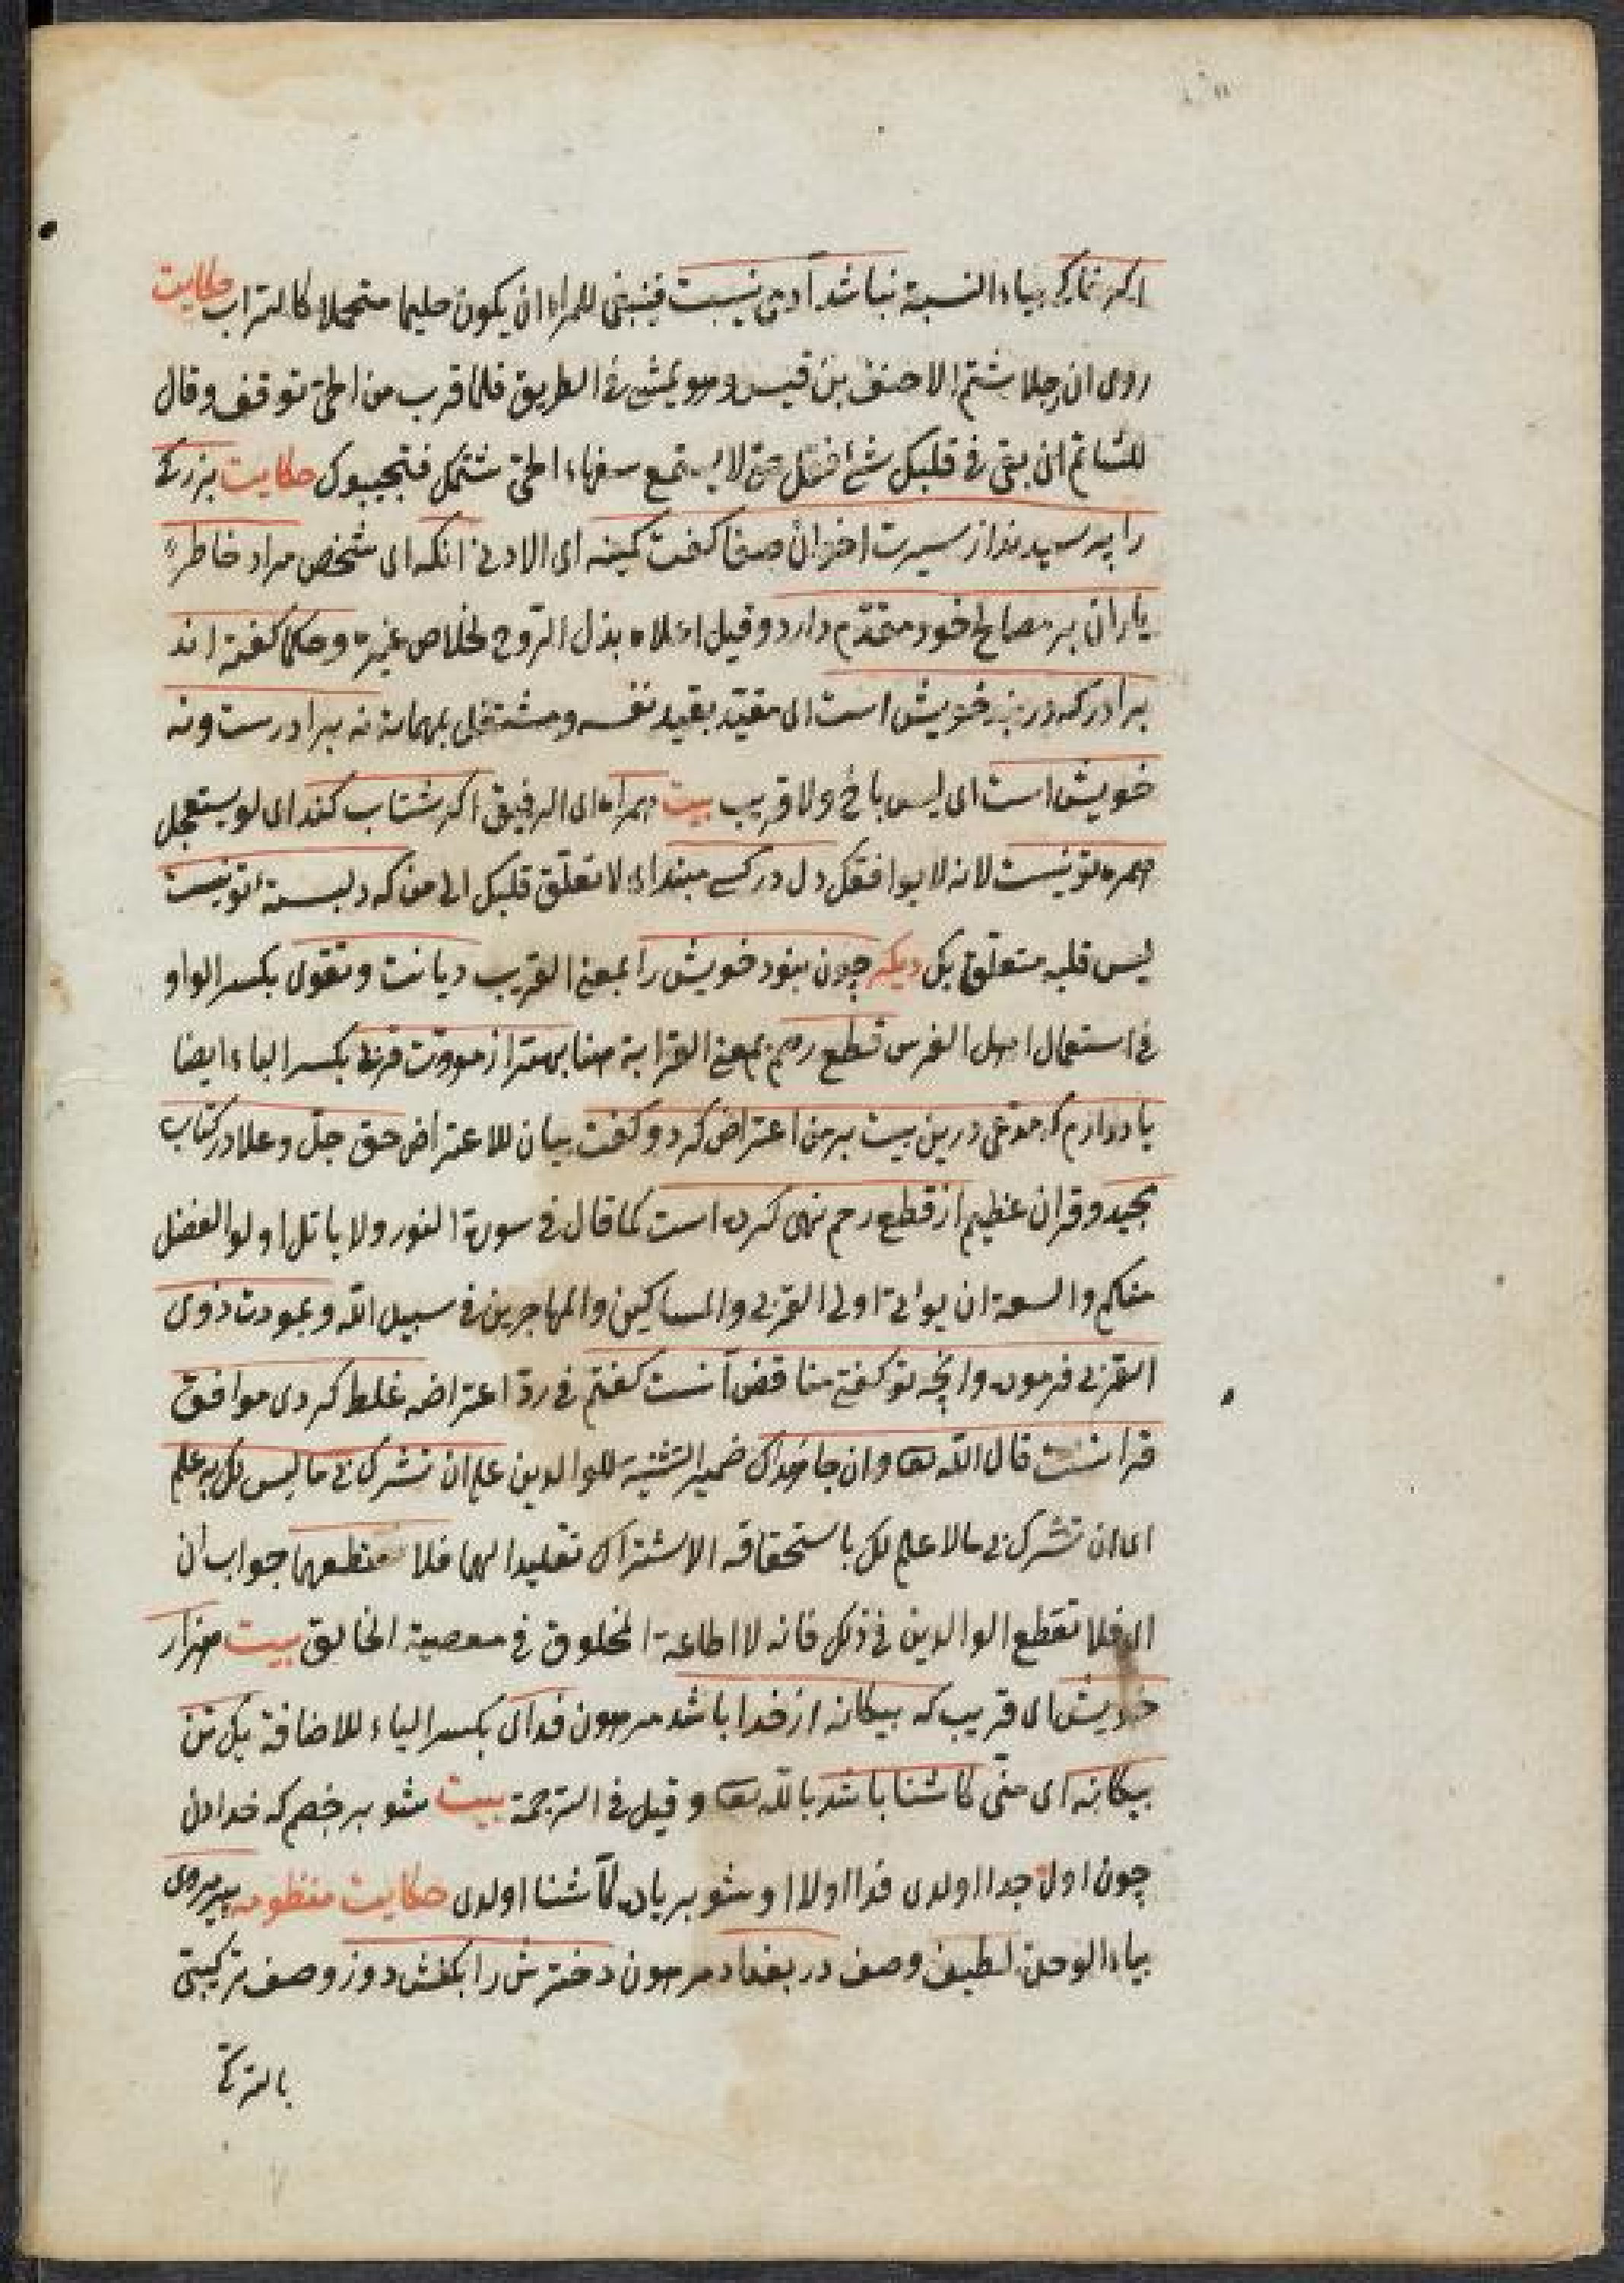 اگر خاکی بیاء النسبة نباشد آدمی نیست فینبغی للمراء ان یکون حلیما متحملا کالتراب حکایت
روی ان رجلا شتم الاحنف بن قیس وهو یمشی فی الطریق فلما قرب من الحی توقف وقال
للشاتم ان بقی فی قلبک شئ افقل حتی لا یستمع سفهاء الحی شتمک فتجیبوک حکایت بزرکی
را پرسیدند از سیرت اخوان صفا کفت کمینه ای الادنی انکه ای شخص مراد خاطر
یاران بر مصالح خود مقدم دارد وقیل اعلاه بذل الروح لخلاص غیره وحکما کفته اند
برادر که در بند خویش است ای مقید بقید نفسه ومشتغل بمهماته نه برادرست ونه
خویش است ای لیس باخ ولا قریب بیت همراه ای الرفیق اکر شتاب کند ای لو یستعجل
همره تو نیست لانه لا یوافقک دل در کسی مبند ای لا تعلق قلبک الی من که دلبسته تو نیست
لیس قلبه متعلق بک دیکر چون نبود خویش را بمعنی القریب دیانت وتقوی بکسر الواو
فی استعمال اهل الفرس قطع رحم بمعنی القرابة هنا بهتر از مودت قربی بکسر الباء ایضا
یاد دارم که مدعی درین بیت بر من اعتراض کرد وکفت بیان للاعتراض حق جل وعلا در کتاب
مجید وقران عظیم از قطع رحم نهی کرده است کما قال فی سورة النور ولا یاتل اولوا الفضل
منکم والسعة ان یؤاتی اولی القربی والمساکین والمهاجرین فی سبیل الله وبمودت ذوی
القربی فرموده وانچه تو کفتی مناقض آنست کفتم فی رد اعتراضه غلط کردی موافق
قرانست قال الله تعا وان جاهداک ضمیر التثنیة للوالدین علی ان تشرک بی ما لیس لک به علم
ای ان تشرک بی ما لا علم لک باستحقاقه الاشتراک تقلیدا لهما فلا تطعهما جواب ان
ای فلا تقطع الوالدین فی ذلک فانه لا اطاعة المخلوق فی معصیة الخالق بیت هزار
خویش ای قریب که بیکانه از خدا باشد مرهون فدای بکسر الیاء للاضافة یک تن
بیکانه ای منی کاشنا باشد بالله تعا وقیل فی الترجمة بیت شو بر خصم که خدادن
چون اوله جدا اولدی فدا اولا او شو بر یاده کآشنا اولدی حکایت منظومه پیرمردی
بیاء الوحدة لطیف وصف در بغداد مرهون دخترش را بکفش دوز وصف ترکیبی
بالترکی